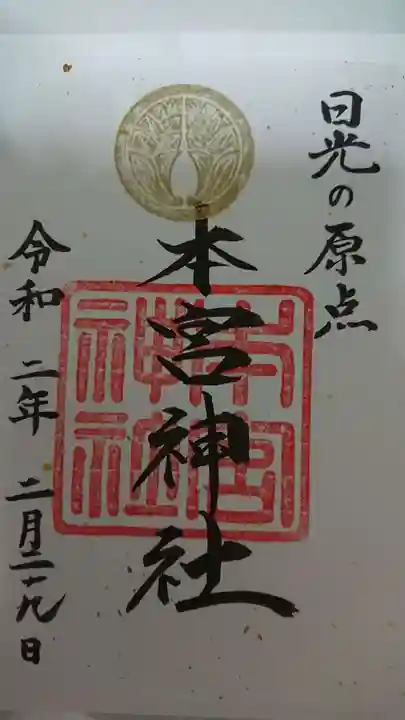 日光の原点
本宮神社
本宮神社
令和二年二月二十九日